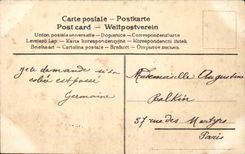 Carte postale - Postkarte
Post card - Weltpostverein
Union postale universelle - Dopisnice - Correspondenzkarte
Levelező-Lap - Karta korrespondencyjna - Briefkaart
Briefkaart - Cartolina postale - Brefkort - Dopisnica
je te demande si ton
colis est passé
Germaine
Mademoiselle Augustine
57 rue des Martyrs
Paris